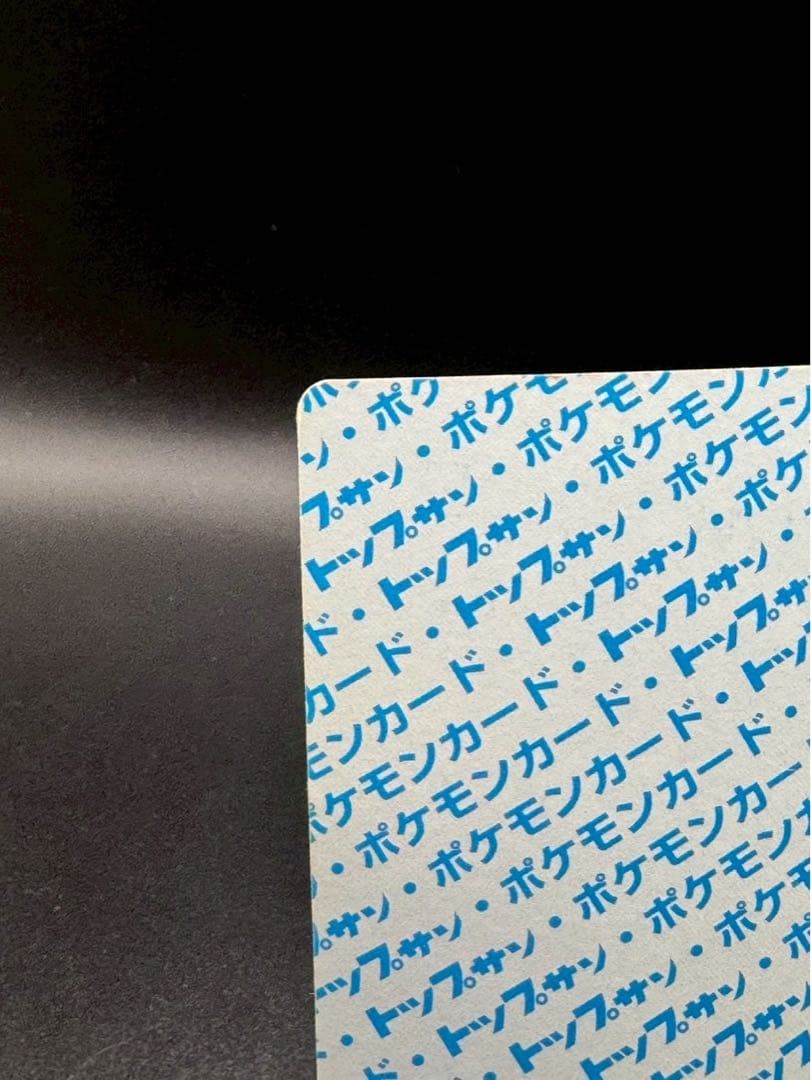 ン・ポケ
プサン・ポケモ
トップサン・ポケモン
ド・トップサン・ポケモンカ
カード・トップサン・ポケモン
モンカード・トップサン・ポケ
ポケモンカード・トップサン・
・ポケモンカード・トップサ
プサン・ポケモンカード・トッ
ップサン・ポケモンカード・
・トップサン・ポケモンカ
ド・トップサン・ポケモ
トップサン・ポ
トップサ